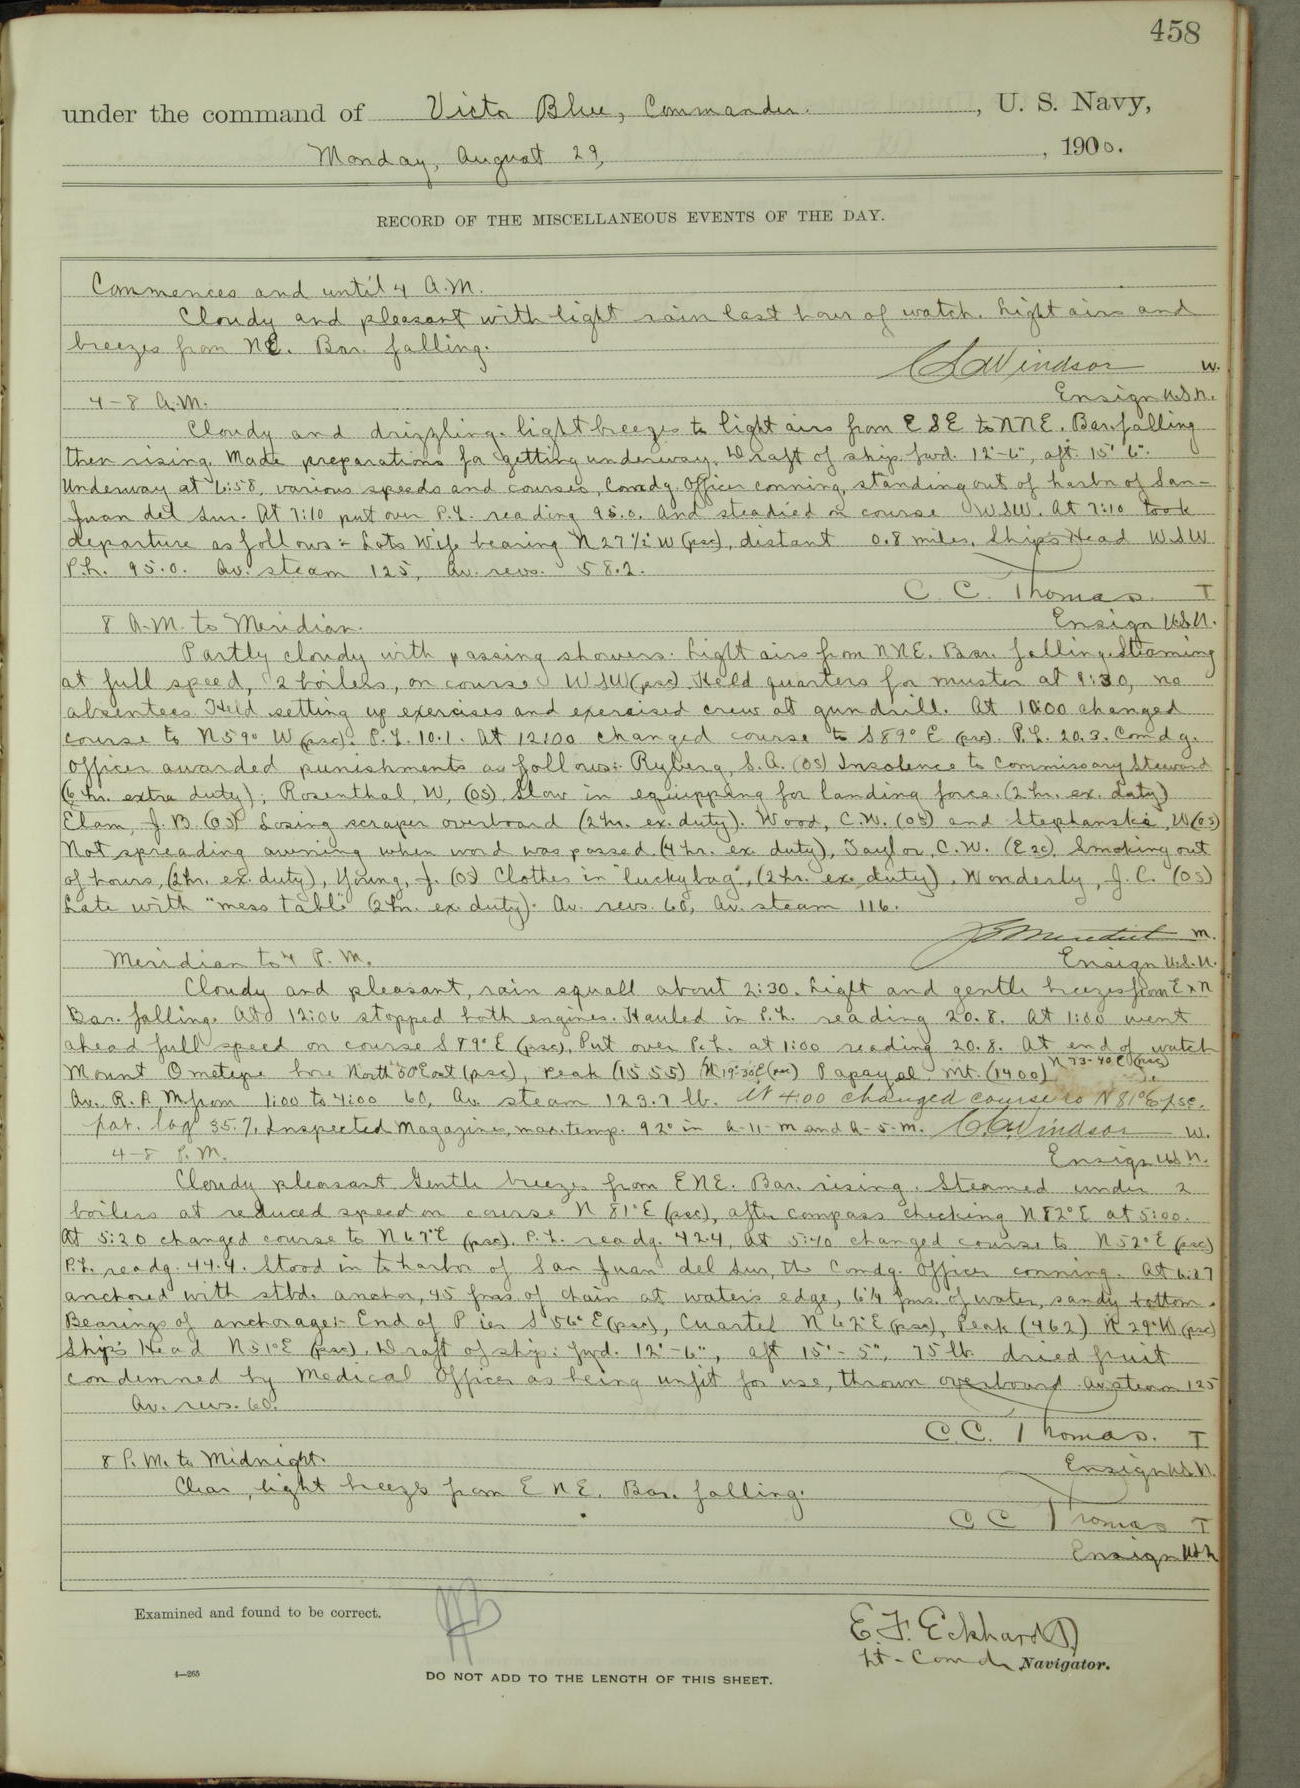 458
under the command of Victor Blue, Commander. , U. S. Navy,
Monday, August 29, , 1900.
RECORD OF THE MISCELLANEOUS EVENTS OF THE DAY.
Commences and until 4 A.M.
Cloudy and pleasant with light rain last hour of watch. Light airs and
breezes from NE. Bar. falling.
C S Windsor W.
Ensign U.S.N.
4-8 A.M.
Cloudy and drizzling. light breezes to light airs from ESE to NNE. Bar. falling
then rising. Made preparations for getting underway. Draft of ship fwd. 12'-6", aft. 15' 6".
Underway at 6:58, various speeds and courses, Comdg. Officer conning, standing out of harbor of San-
Juan del Sur. At 7:10 put over P.L. reading 95.0. and steadied on course WSW. At 7:10 took
departure as follows:- Lots Wife bearing N 27½° W (psc), distant 0.8 miles. Ship's Head WSW
P.L. 95.0. Av. steam 125, Av. revs. 58.2.
C. C. Thomas. T
Ensign U.S.N.
8 A.M. to Meridian.
Partly cloudy with passing showers. Light airs from NNE. Bar. falling. Steaming
at full speed, 2 boilers, on course WSW (psc). Held quarters for muster at 9:30, no
absentees. Held setting up exercises and exercised crew at gundrill. At 10:00 changed
course to N 59° W (psc). P.L. 10.1. At 12:00 changed course to S 89° E (psc). P.L. 20.3. Comdg.
Officer awarded punishments as follows:- Ryberg, S.A. (OS) Insolence to Commissary Steward
(6 hr. extra duty); Rosenthal, W, (OS), Slow in equipping for landing force. (2 hr. ex. duty)
Elam, J. B. (OS) Losing scraper overboard (2 hr. ex. duty). Wood, C.W. (OS) and Stephanski, W (OS)
Not spreading awning when word was passed. (4 hr. ex. duty), Taylor, C.W. (E2c), Smoking out
of hours, (2 hr. ex. duty), Young, J. (OS) Clothes in "lucky bag", (2 hr. ex. duty), Wonderly, J. C. (OS)
Late with "mess table" (2 hr. ex. duty). Av. revs. 60, Av. steam 116.
M.
Ensign U.S.N.
Meridian to 4 P.M.
Cloudy and pleasant, rain squall about 2:30. Light and gentle breezes from ExN
Bar. falling. At 12:06 stopped both engines. Hauled in P.L. reading 20.8. At 1:00 went
ahead full speed on course S 89° E (psc). Put over P.L. at 1:00 reading 20.8. At end of watch
Mount Ometepe bore North 50° East (psc), peak (1555) N 19°-30' E (psc) Papayal Mt. (1400) N 73-40 E (psc).
Av. R.P.M. from 1:00 to 4:00 60, Av. steam 123.7 lb. At 4:00 changed course to N 81° E psc.
pat. log 35.7. Inspected Magazines, max. temp. 92° in A-11-M and A-5-M. C. S. Windsor W.
Ensign U.S.N.
4-8 P.M.
Cloudy pleasant. Gentle breezes from ENE. Bar. rising. Steamed under 2
boilers at reduced speed on course N 81° E (psc), after compass checking N 82° E at 5:00.
At 5:20 changed course to N 67° E (psc). P.L. readg. 42.4, at 5:40 changed course to N 52° E (psc)
P.L. readg. 44.4. Stood in to harbor of San Juan del Sur, the Comdg. Officer conning. At 6:27
anchored with stbd. anchor, 45 fms. of chain at water's edge, 6¼ fms. of water, sandy bottom.
Bearings of anchorage:- End of Pier S 56° E (psc), Cuartel N 62° E (psc), Peak (462) N 29° W (psc)
Ship's Head N 51° E (psc). Draft of ship: fwd. 12'-6", aft 15'-5", 75 lb. dried fruit
condemned by Medical Officer as being unfit for use, thrown overboard. Av. steam 125
Av. revs. 60.
C. C. Thomas. T
Ensign U.S.N.
8 P.M. to Midnight.
Clear, light breezes from ENE. Bar. falling.
C C Thomas T
Ensign U.S.N
Examined and found to be correct.
E. F. Eckhardt
Lt-Comdr Navigator.
4—265
DO NOT ADD TO THE LENGTH OF THIS SHEET.